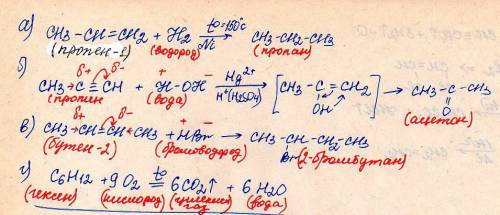 а) CH₃-CH=CH₂ + H₂ t°=150°C Ni → CH₃-CH₂-CH₃
(пропен-1) (водород) (пропан)
б) CH₃→C≡CH + H-OH Hg²⁺ H⁺(H₂SO₄) → [CH₃-C=CH₂ OH] → CH₃-C-CH₃ O
δ+ δ- + -
(пропин (вода) (ацетон)
в) CH₃→CH=CH-CH₃ + HBr → CH₃-CH-CH₂-CH₃ Br
δ+ δ- + -
(бутен-2) (бромоводород) (2-бромбутан)
г) C₆H₁₂ + 9O₂ t° = 6CO₂↑ + 6H₂O
(гексен) (кислород) (углекислый газ) (вода)